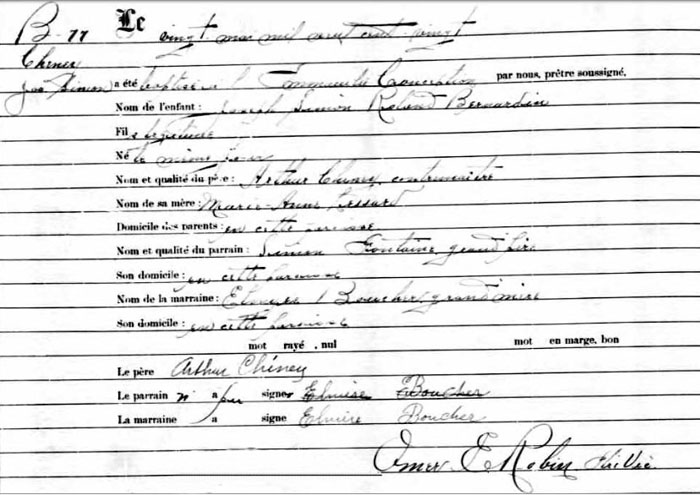 B-77 Le vingt mai mil neuf cent vingt
Cheney
Jos Simeon a été baptisé à l'Immaculée Conception par nous, prêtre soussigné,
Nom de l'enfant : Joseph Simeon Roland Bernardin
Fils légitime
Né le même jour
Nom et qualité du père : Arthur Cheney contremaître
Nom de sa mère : Marie-Anne Lessard
Domicile des parents : en cette paroisse
Nom et qualité du parrain : Simeon Fontaine, grand père
Son domicile : en cette paroisse
Nom de la marraine : Boucher, grand'mère
Son domicile : en cette paroisse
mot rayé, nul mot en marge, bon
Le père Arthur Cheney
Le parrain n' a pu signer Elmire Boucher
La marraine a signé Elmire Boucher
Omer E. Robin Ptre Vic.